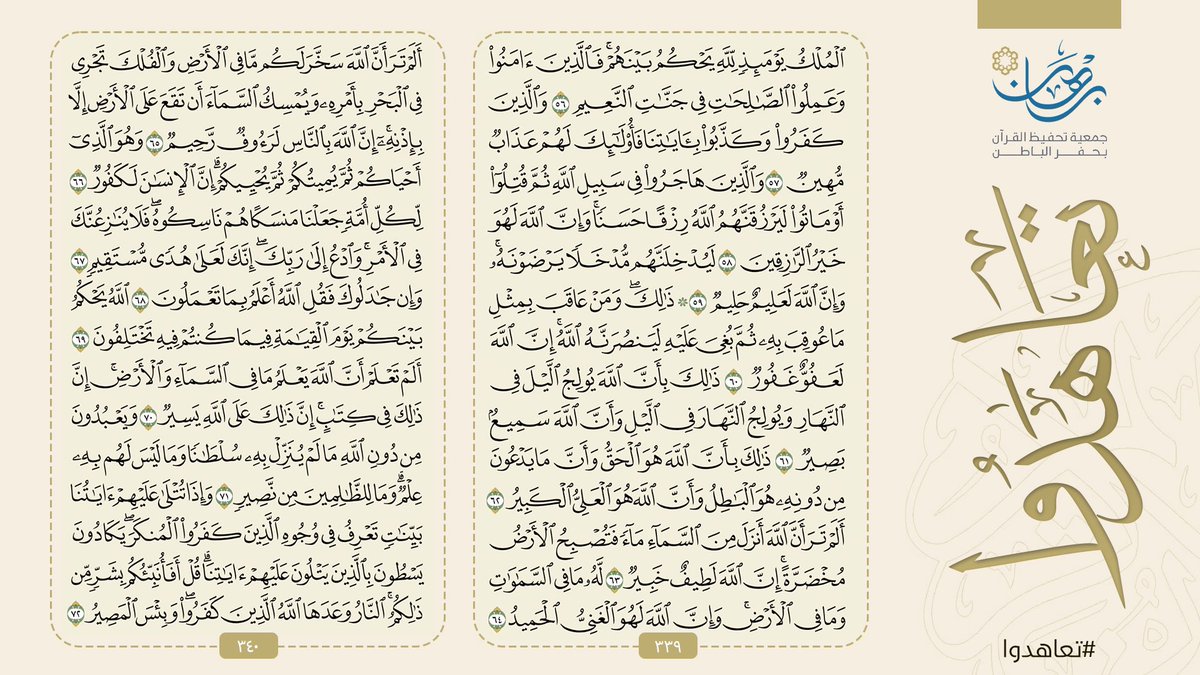 برهان
جمعية تحفيظ القرآن
بحفر الباطن
تعاهدوا
#تعاهدوا
ٱلۡمُلۡكُ يَوۡمَئِذٖ لِّلَّهِ يَحۡكُمُ بَيۡنَهُمۡۚ فَٱلَّذِينَ ءَامَنُواْ
وَعَمِلُواْ ٱلصَّٰلِحَٰتِ فِي جَنَّٰتِ ٱلنَّعِيمِ ٥٦ وَٱلَّذِينَ
كَفَرُواْ وَكَذَّبُواْ بِـَٔايَٰتِنَا فَأُوْلَٰٓئِكَ لَهُمۡ عَذَابٞ
مُّهِينٞ ٥٧ وَٱلَّذِينَ هَاجَرُواْ فِي سَبِيلِ ٱللَّهِ ثُمَّ قُتِلُوٓاْ
أَوۡ مَاتُواْ لَيَرۡزُقَنَّهُمُ ٱللَّهُ رِزۡقًا حَسَنٗاۚ وَإِنَّ ٱللَّهَ لَهُوَ
خَيۡرُ ٱلرَّٰزِقِينَ ٥٨ لَيُدۡخِلَنَّهُم مُّدۡخَلٗا يَرۡضَوۡنَهُۥۚ
وَإِنَّ ٱللَّهَ لَعَلِيمٌ حَلِيمٞ ٥٩ ۞ ذَٰلِكَۖ وَمَنۡ عَاقَبَ بِمِثۡلِ
مَا عُوقِبَ بِهِۦ ثُمَّ بُغِيَ عَلَيۡهِ لَيَنصُرَنَّهُ ٱللَّهُۚ إِنَّ ٱللَّهَ
لَعَفُوٌّ غَفُورٞ ٦٠ ذَٰلِكَ بِأَنَّ ٱللَّهَ يُولِجُ ٱلَّيۡلَ فِي
ٱلنَّهَارِ وَيُولِجُ ٱلنَّهَارَ فِي ٱلَّيۡلِ وَأَنَّ ٱللَّهَ سَمِيعُۢ
بَصِيرٞ ٦١ ذَٰلِكَ بِأَنَّ ٱللَّهَ هُوَ ٱلۡحَقُّ وَأَنَّ مَا يَدۡعُونَ
مِن دُونِهِۦ هُوَ ٱلۡبَٰطِلُ وَأَنَّ ٱللَّهَ هُوَ ٱلۡعَلِيُّ ٱلۡكَبِيرُ ٦٢
أَلَمۡ تَرَ أَنَّ ٱللَّهَ أَنزَلَ مِنَ ٱلسَّمَآءِ مَآءٗ فَتُصۡبِحُ ٱلۡأَرۡضُ
مُخۡضَرَّةًۚ إِنَّ ٱللَّهَ لَطِيفٌ خَبِيرٞ ٦٣ لَّهُۥ مَا فِي ٱلسَّمَٰوَٰتِ
وَمَا فِي ٱلۡأَرۡضِۚ وَإِنَّ ٱللَّهَ لَهُوَ ٱلۡغَنِيُّ ٱلۡحَمِيدُ ٦٤
٣٣٩
أَلَمۡ تَرَ أَنَّ ٱللَّهَ سَخَّرَ لَكُم مَّا فِي ٱلۡأَرۡضِ وَٱلۡفُلۡكَ تَجۡرِي
فِي ٱلۡبَحۡرِ بِأَمۡرِهِۦ وَيُمۡسِكُ ٱلسَّمَآءَ أَن تَقَعَ عَلَى ٱلۡأَرۡضِ إِلَّا
بِإِذۡنِهِۦٓۚ إِنَّ ٱللَّهَ بِٱلنَّاسِ لَرَءُوفٞ رَّحِيمٞ ٦٥ وَهُوَ ٱلَّذِيٓ
أَحۡيَاكُمۡ ثُمَّ يُمِيتُكُمۡ ثُمَّ يُحۡيِيكُمۡۗ إِنَّ ٱلۡإِنسَٰنَ لَكَفُورٞ ٦٦
لِّكُلِّ أُمَّةٖ جَعَلۡنَا مَنسَكًا هُمۡ نَاسِكُوهُۖ فَلَا يُنَٰزِعُنَّكَ
فِي ٱلۡأَمۡرِۚ وَٱدۡعُ إِلَىٰ رَبِّكَۖ إِنَّكَ لَعَلَىٰ هُدٗى مُّسۡتَقِيمٖ ٦٧
وَإِن جَٰدَلُوكَ فَقُلِ ٱللَّهُ أَعۡلَمُ بِمَا تَعۡمَلُونَ ٦٨ ٱللَّهُ يَحۡكُمُ
بَيۡنَكُمۡ يَوۡمَ ٱلۡقِيَٰمَةِ فِيمَا كُنتُمۡ فِيهِ تَخۡتَلِفُونَ ٦٩
أَلَمۡ تَعۡلَمۡ أَنَّ ٱللَّهَ يَعۡلَمُ مَا فِي ٱلسَّمَآءِ وَٱلۡأَرۡضِۚ إِنَّ
ذَٰلِكَ فِي كِتَٰبٍۚ إِنَّ ذَٰلِكَ عَلَى ٱللَّهِ يَسِيرٞ ٧٠ وَيَعۡبُدُونَ
مِن دُونِ ٱللَّهِ مَا لَمۡ يُنَزِّلۡ بِهِۦ سُلۡطَٰنٗا وَمَا لَيۡسَ لَهُم بِهِۦ
عِلۡمٞۗ وَمَا لِلظَّٰلِمِينَ مِن نَّصِيرٖ ٧١ وَإِذَا تُتۡلَىٰ عَلَيۡهِمۡ ءَايَٰتُنَا
بَيِّنَٰتٖ تَعۡرِفُ فِي وُجُوهِ ٱلَّذِينَ كَفَرُواْ ٱلۡمُنكَرَۖ يَكَادُونَ
يَسۡطُونَ بِٱلَّذِينَ يَتۡلُونَ عَلَيۡهِمۡ ءَايَٰتِنَاۗ قُلۡ أَفَأُنَبِّئُكُم بِشَرّٖ مِّن
ذَٰلِكُمُۚ ٱلنَّارُ وَعَدَهَا ٱللَّهُ ٱلَّذِينَ كَفَرُواْۖ وَبِئۡسَ ٱلۡمَصِيرُ ٧٢
٣٤٠